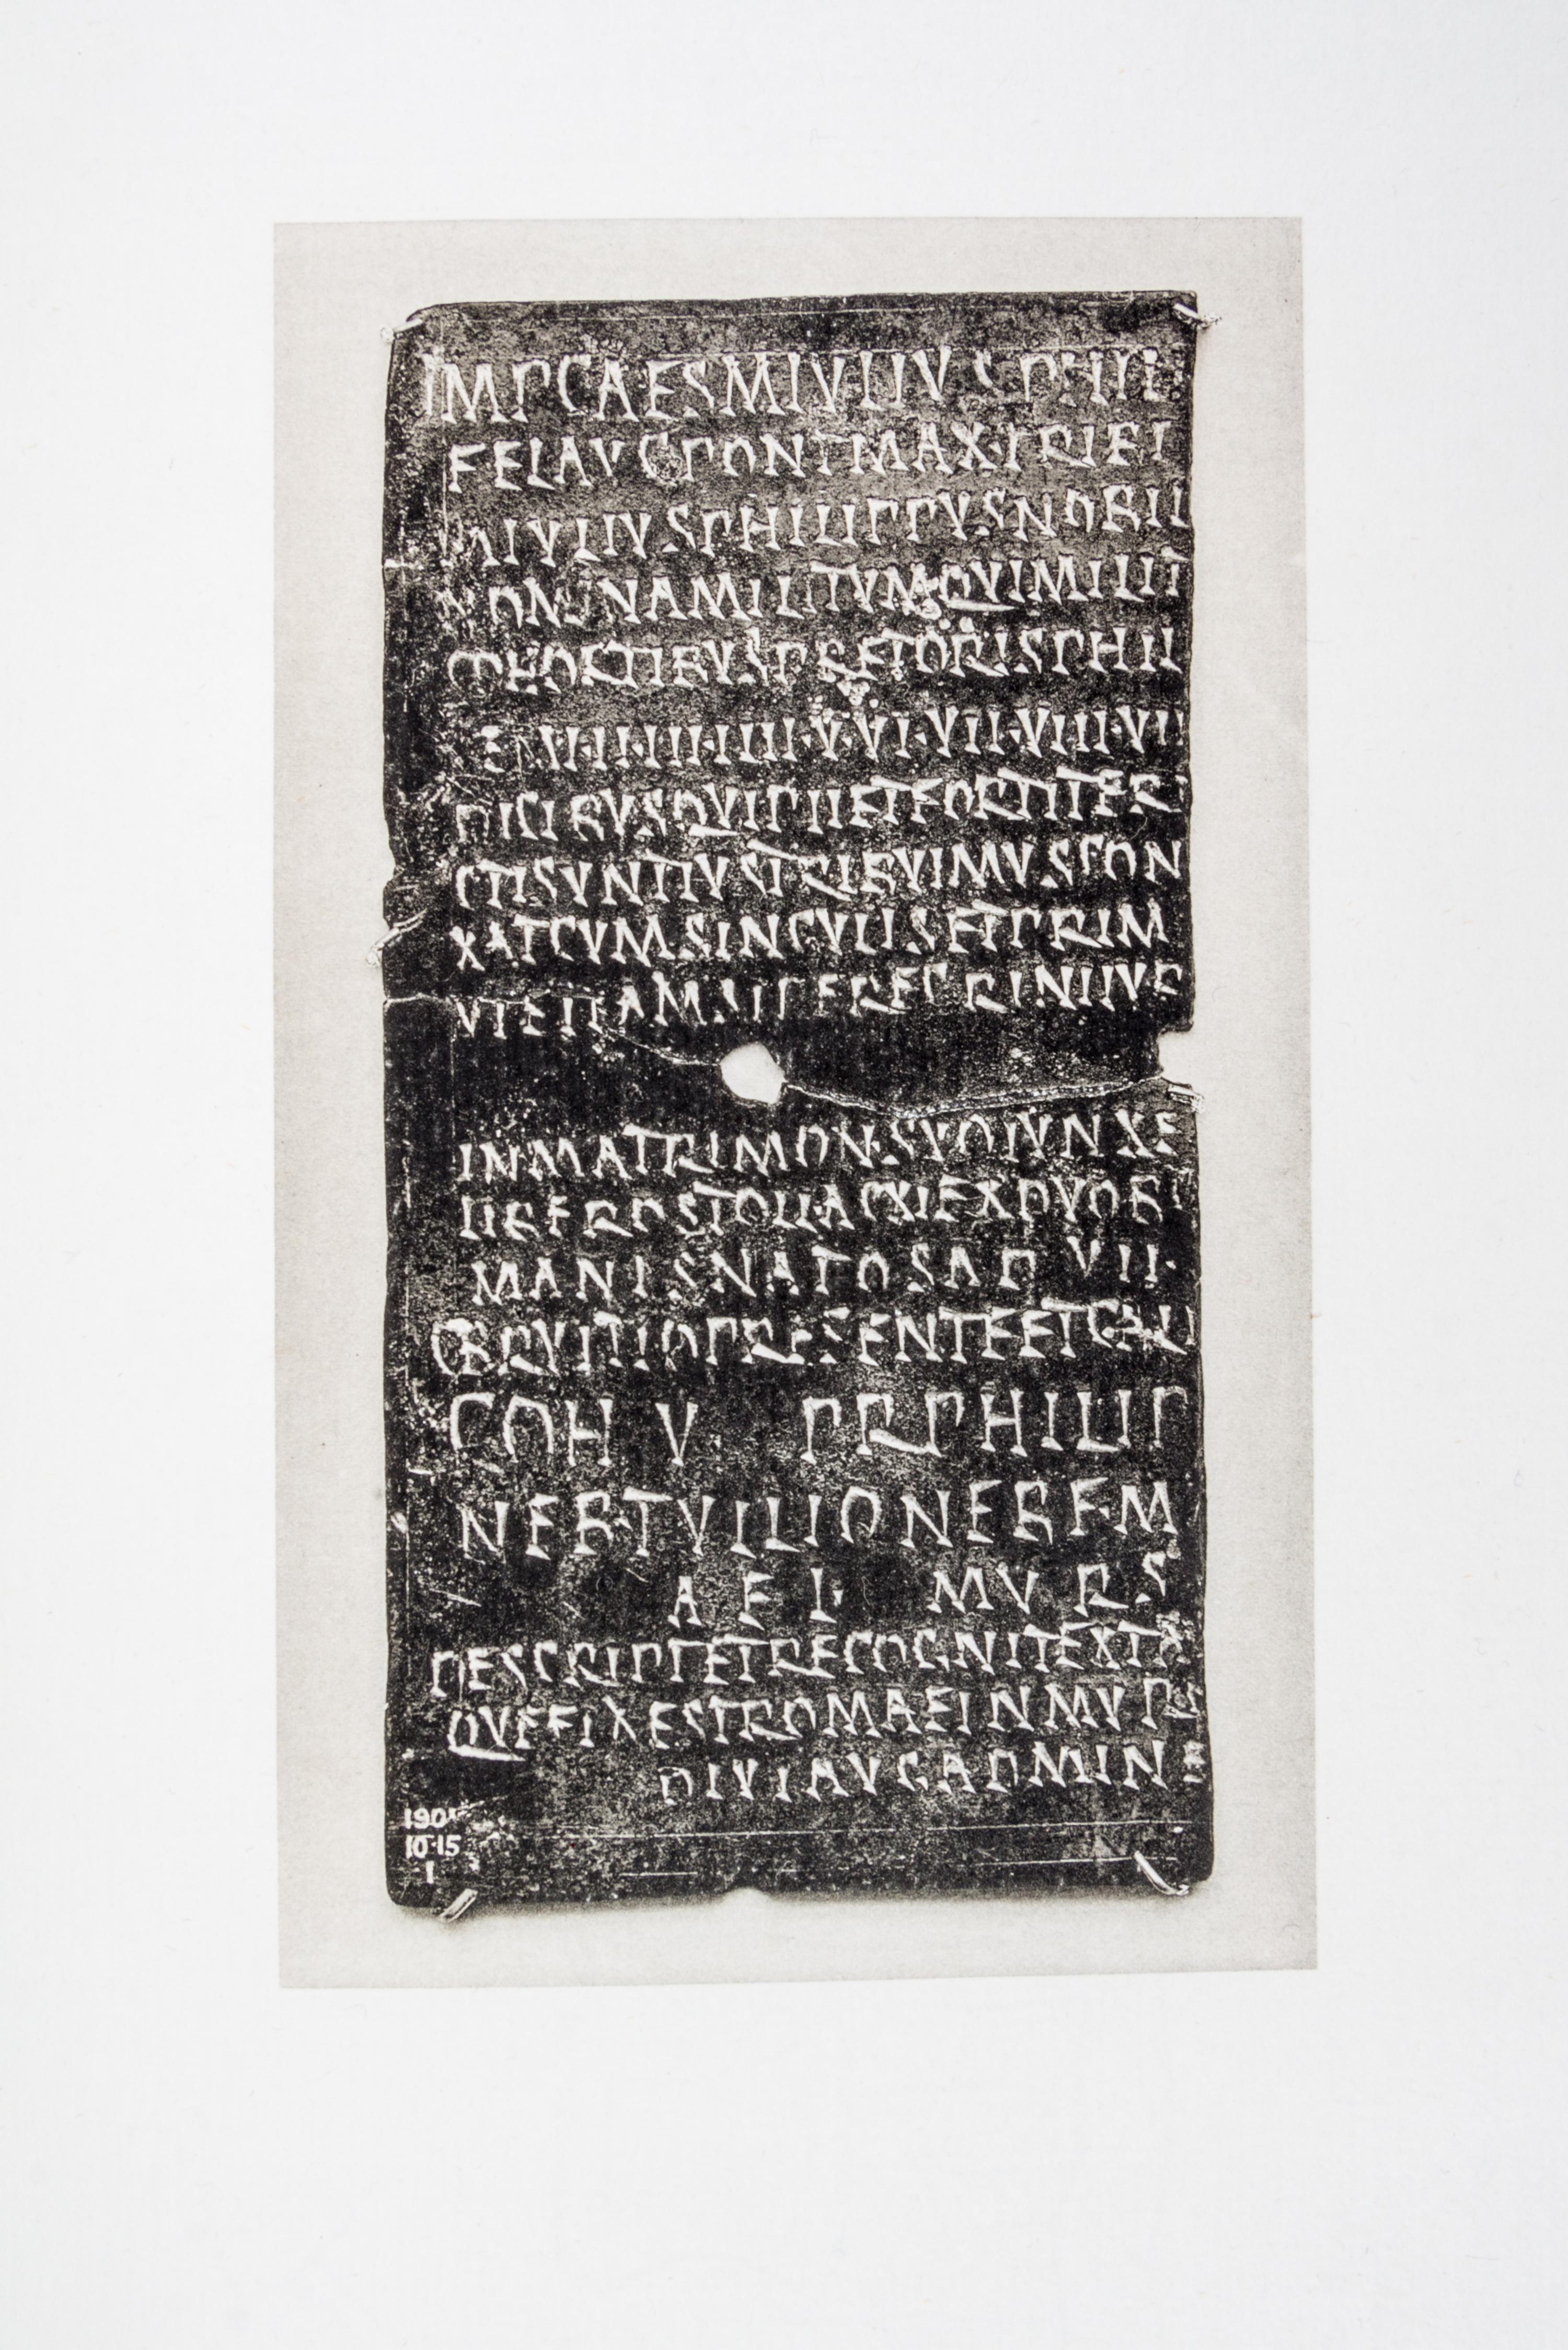 IMPCAESMIVLIVSPHILI
FELAVGPONTMAXTRIBI
MIVLIVSPHILIPPVSNOBIL
NOMINAMILITVMQVIMILIT
COHORTIBVSPRETORISPHIL
I·II·III·IIII·V·VI·VII·VIII·VII
DICIBVSQVIPIIETFORTITER
CTISVNTIVSTRIBVIMVSCON
XATCVMSINGVLISETPRIM
VTETIAMSIPEREGRINIIVR
INMATRIMON·SVOIVNXE
PIBEROSTOLLACXIEXDVOB
MANISNATOSAD VII·
BRVTTIOPRESENTEETCAL
COH V PRPHILIP
NEBTVILIONEBF·M
AEL· MVRS
DESCRIPTETRECOGNITEXTA
QVEFIXESTROMAEINMVR
DIVIAVGADMINE
190
10·15
1